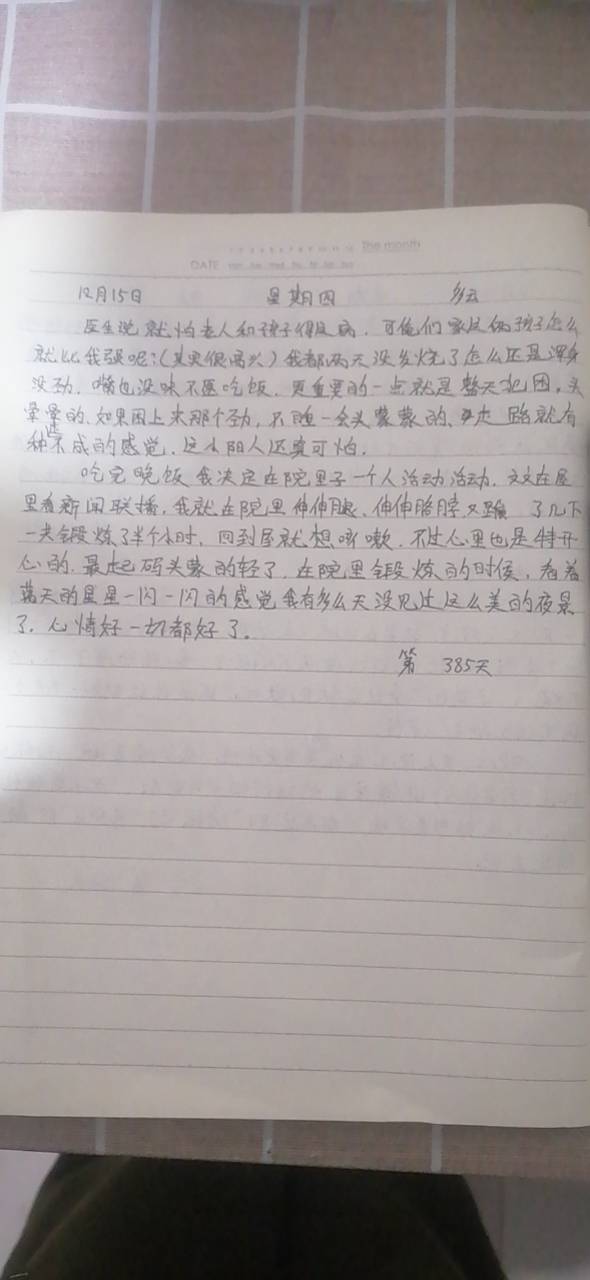 The month
DATE
12月15日 星期四 多云
医生说就怕老人和孩子得这病,可他们家这俩孩子怎么
就比我强呢?(其实很高兴)我都两天没发烧了怎么还是浑身
没劲,嘴也没味不愿吃饭,更重要的一点就是整天犯困,头
晕晕的、如果困上来那个劲,不睡一会头蒙蒙的、走路就有
种走不成的感觉,这小阳人还真可怕。
吃完晚饭我决定在院里子一个人活动活动,文文在屋
里看新闻联播,我就在院里伸伸腿、伸伸胳脖又蹦了几下
一共锻炼了半个小时,回到屋就想咳嗽,不过心里也是特开
心的,最起码头蒙的轻了,在院里锻炼的时候,看着
蓝天的星星一闪一闪的感觉我有多么天没见过这么美的夜景
了,心情好一切都好了。
第 385天